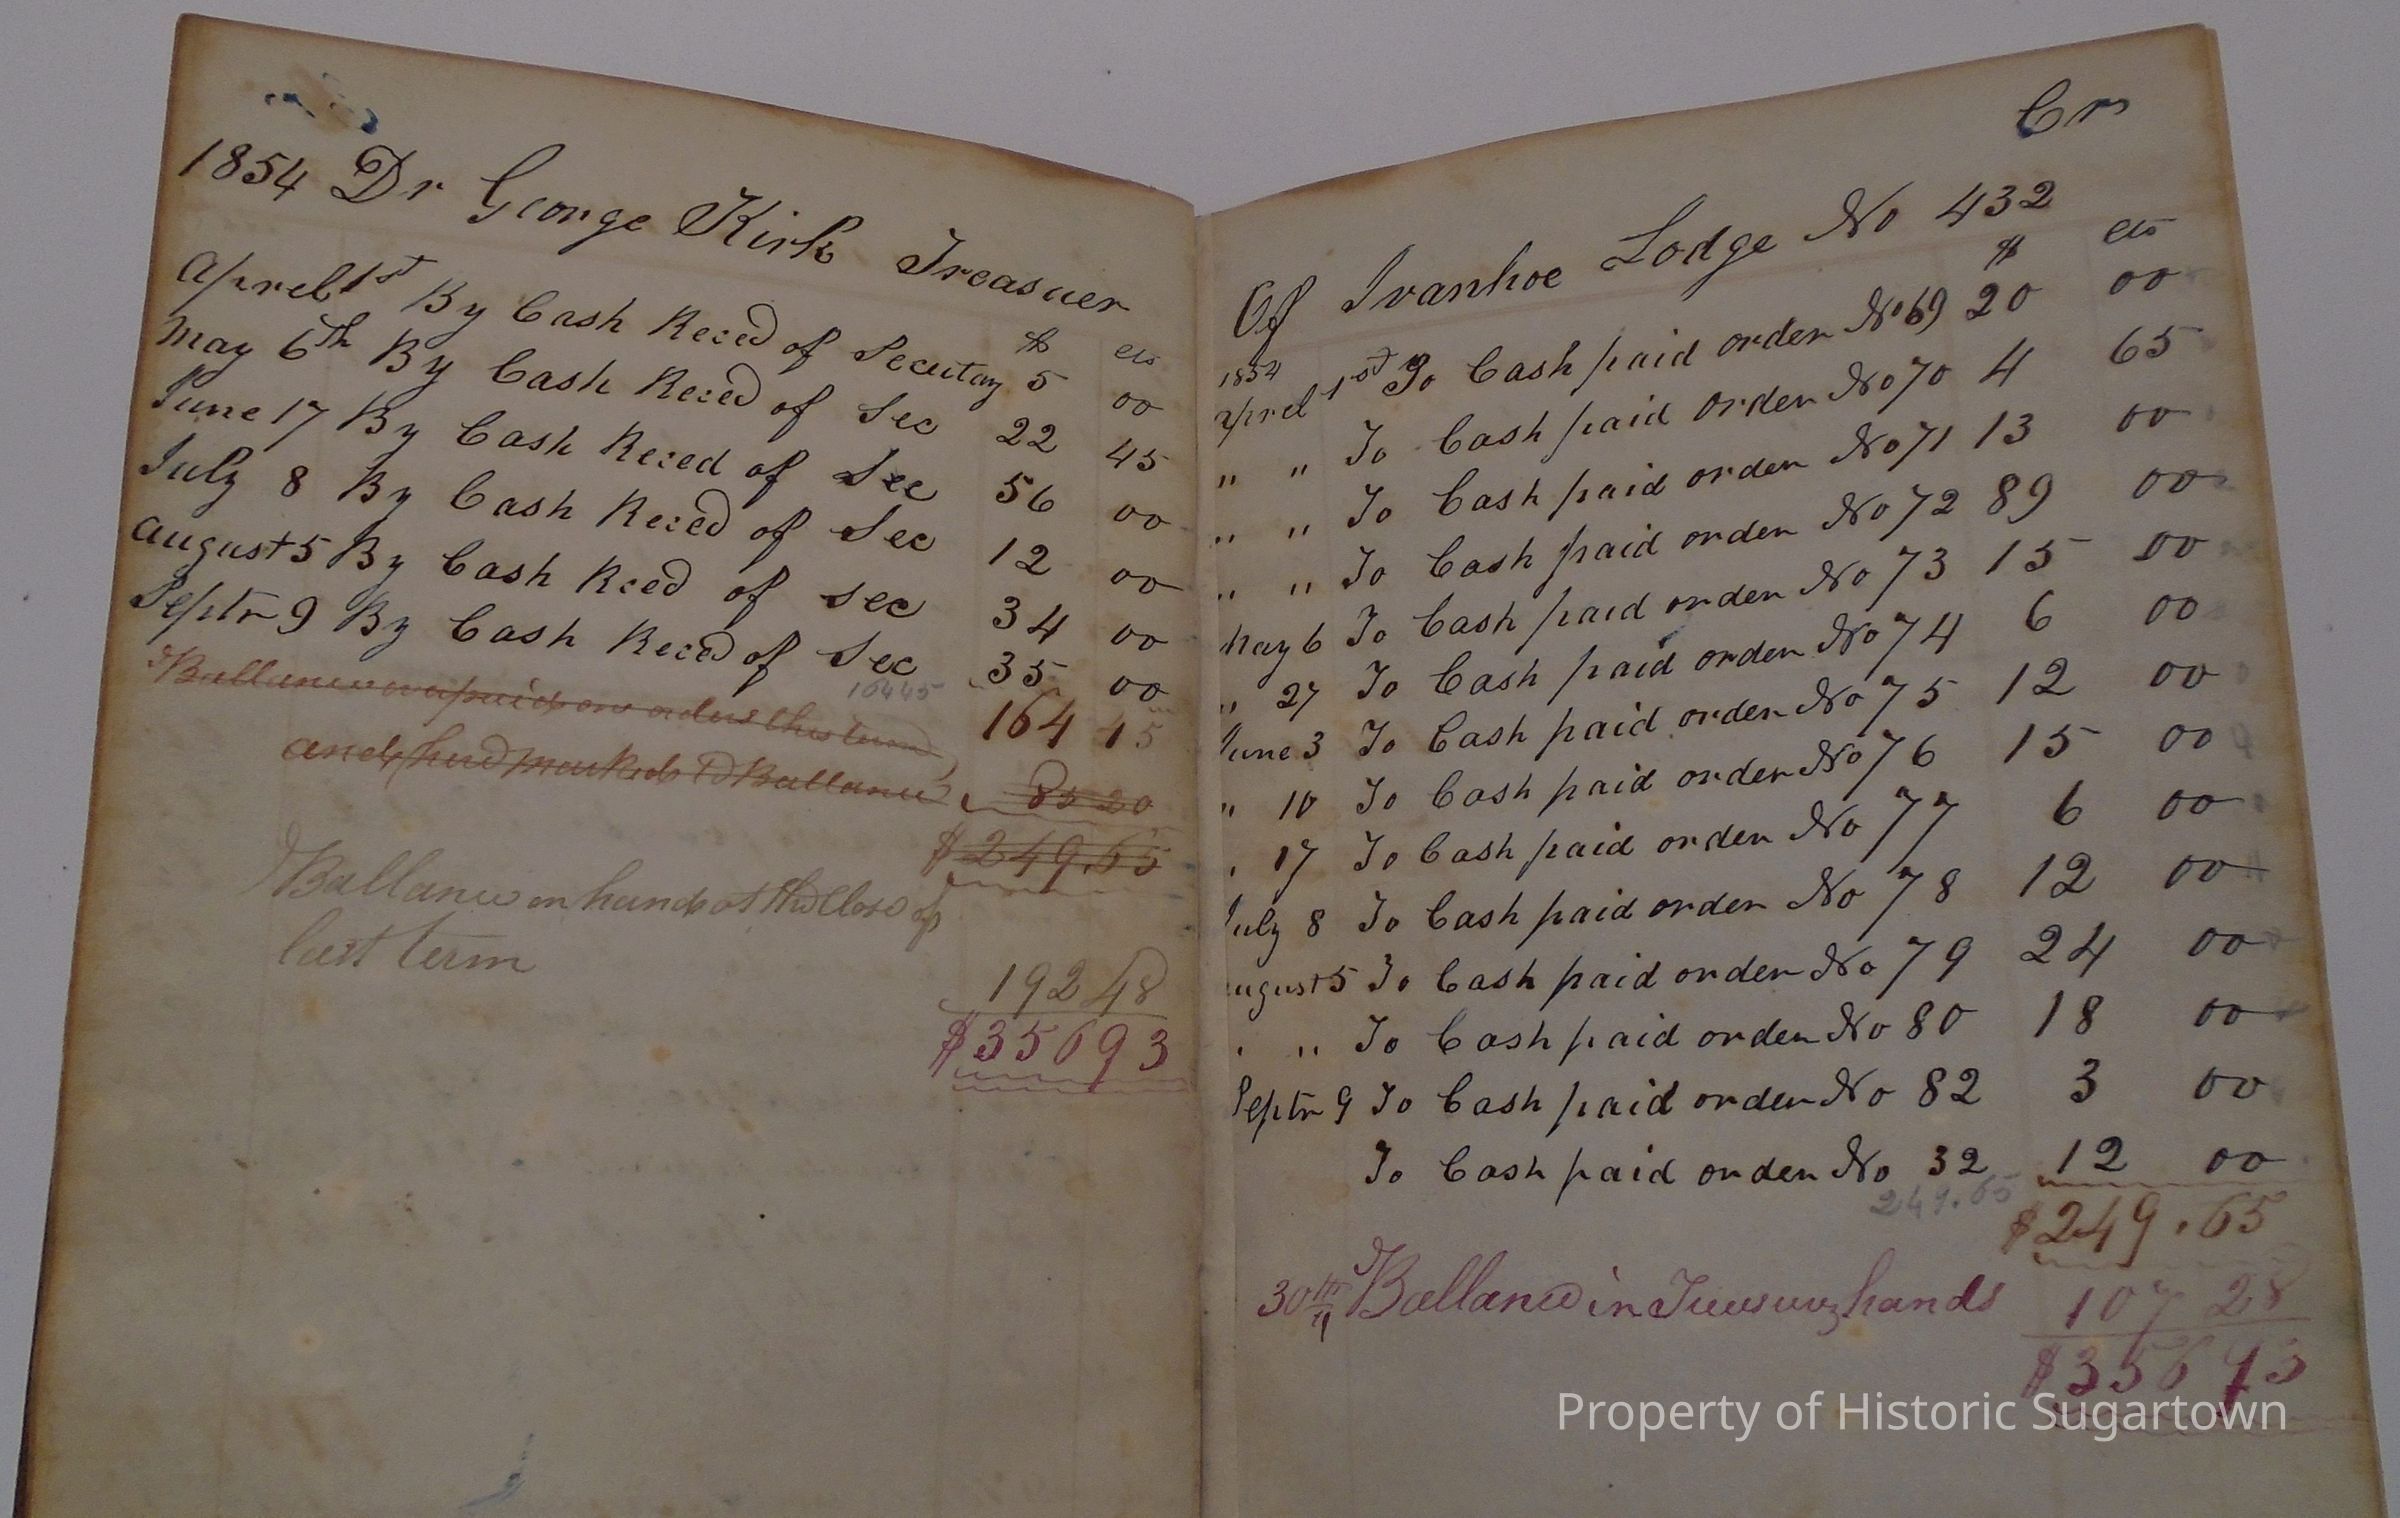 1854 Dr George Kirk Treasuer
$ cts
Aprel 1st By Cash Reced of Secutay 5 00
May 6th By Cash Reced of Sec 22 45
June 17 By Cash Reced of Sec 56 00
July 8 By Cash Reced of Sec 12 00
August 5 By Cash Reced of Sec 34 00
Septr 9 By Cash Reced of Sec 35 00
164 45
164 45
Ballance on orders this term
and Ballance 85 20
$249.65
Ballance on hand at the close of
last term
192 48
$356 93
Cr
Of Ivanhoe Lodge No 432
$ cts
1854
Aprel 1st To Cash paid order No 69 20 00
" " To Cash paid order No 70 4 65
" " To Cash paid order No 71 13 00
" " To Cash paid order No 72 89 00
May 6 To Cash paid order No 73 15 00
" 27 To Cash paid order No 74 6 00
June 3 To Cash paid order No 75 12 00
" 10 To Cash paid order No 76 15 00
" 17 To Cash paid order No 77 6 00
July 8 To Cash paid order No 78 12 00
August 5 To Cash paid order No 79 24 00
" " To Cash paid order No 80 18 00
Septr 9 To Cash paid order No 82 3 00
To Cash paid order No 32 12 00
249.65
$249.65
30th Ballance in Treasurers hands 107 28
$356 93
Property of Historic Sugartown